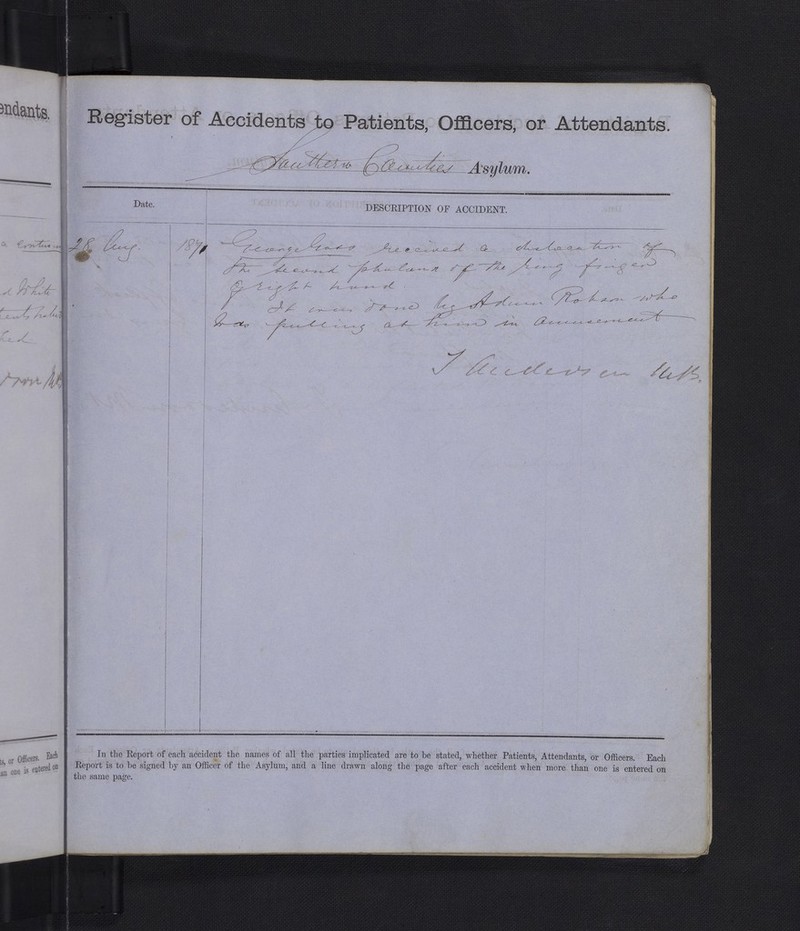 endants.
Register of Accidents to Patients, Officers, or Attendants.
Southern Counties Asylum.
Date.
DESCRIPTION OF ACCIDENT.
28 Aug 1871 George received a dislocation of
the second phalanx of the ring finger
of right hand
It was done by Adam Robson who
was pulling at him in amusement
J Anderson M.B.
a contusion
White
In the Report of each accident the names of all the parties implicated are to be stated, whether Patients, Attendants, or Officers. Each
Report is to be signed by an Officer of the Asylum, and a line drawn along the page after each accident when more than one is entered on
the same page.
s, or Officers. Each
an one is entered on